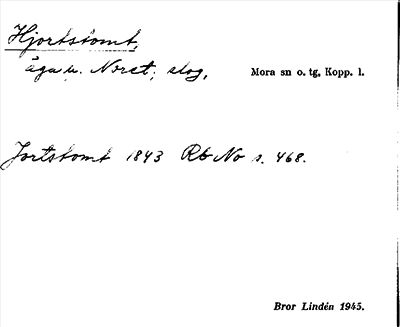 Hjortstomt,
äga u. Noret, slog,
Mora sn o. tg, Kopp. l.
Jortstomt 1843 Rb No s. 468.
Bror Lindén 1945.